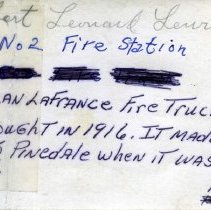 Leonard
No 2 Fire Station
AN LAFRANCE FIRE TRUC
OUGHT IN 1916. IT MADE
PINEDALE WHEN IT WAS